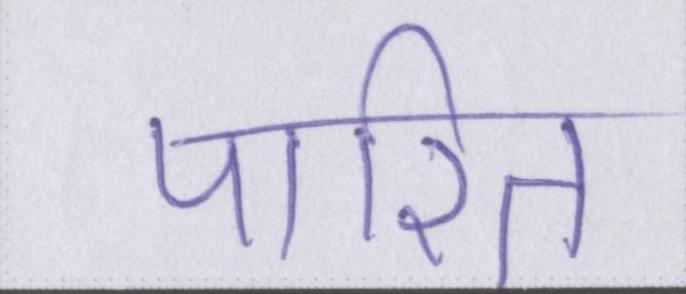 पारित